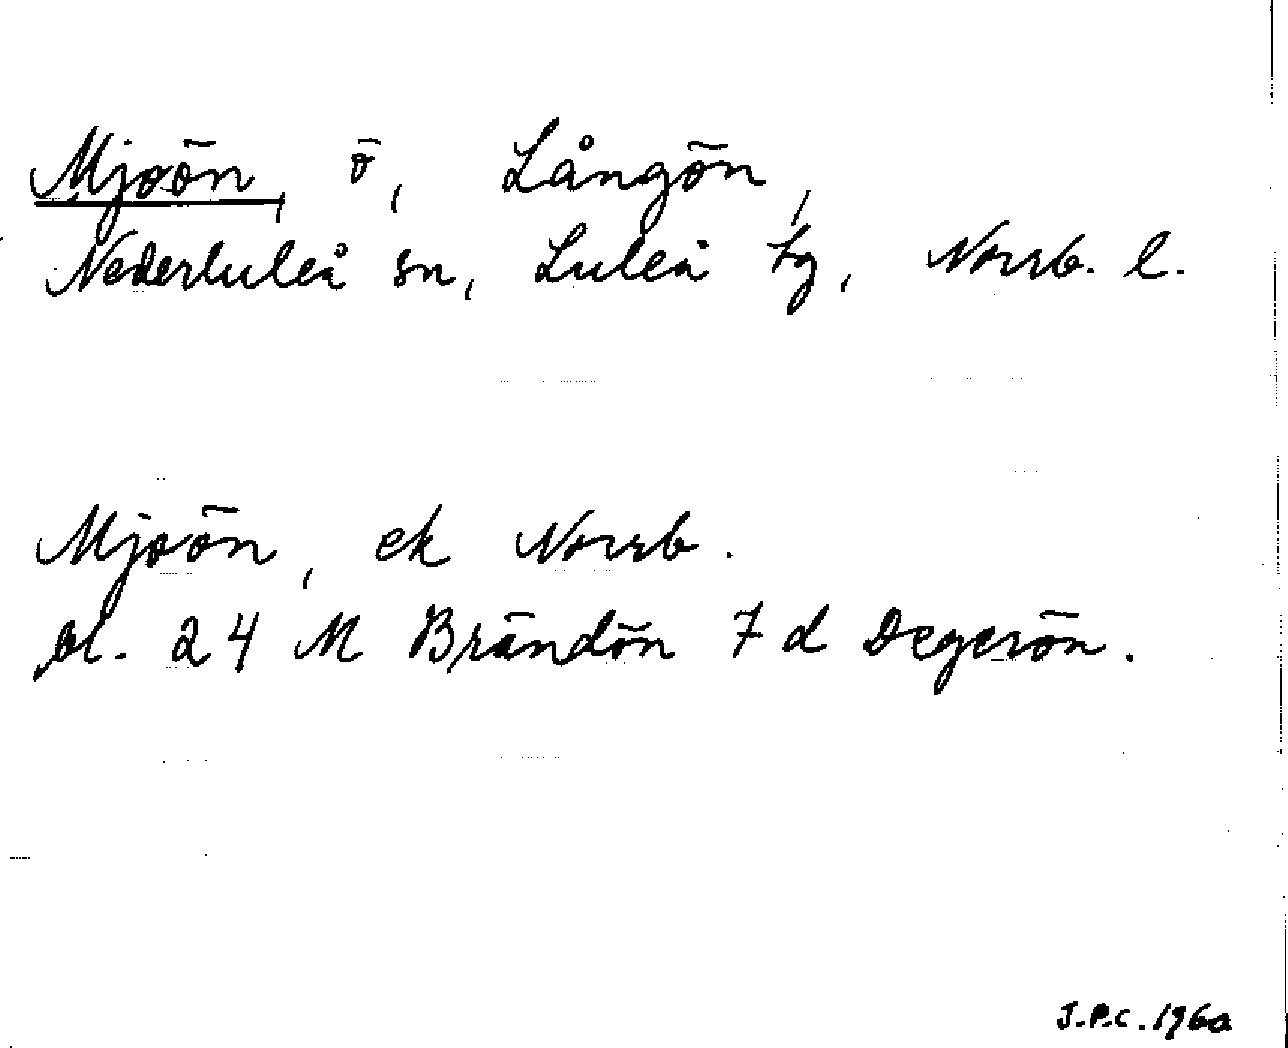 Mjoön, ö, Långön,
Nederluleå sn, Luleå tg, Norrb. l.
Mjoön, ek Norrb.
bl. 24 M Brändön 7 d Degerön.
J.P.C. 1960